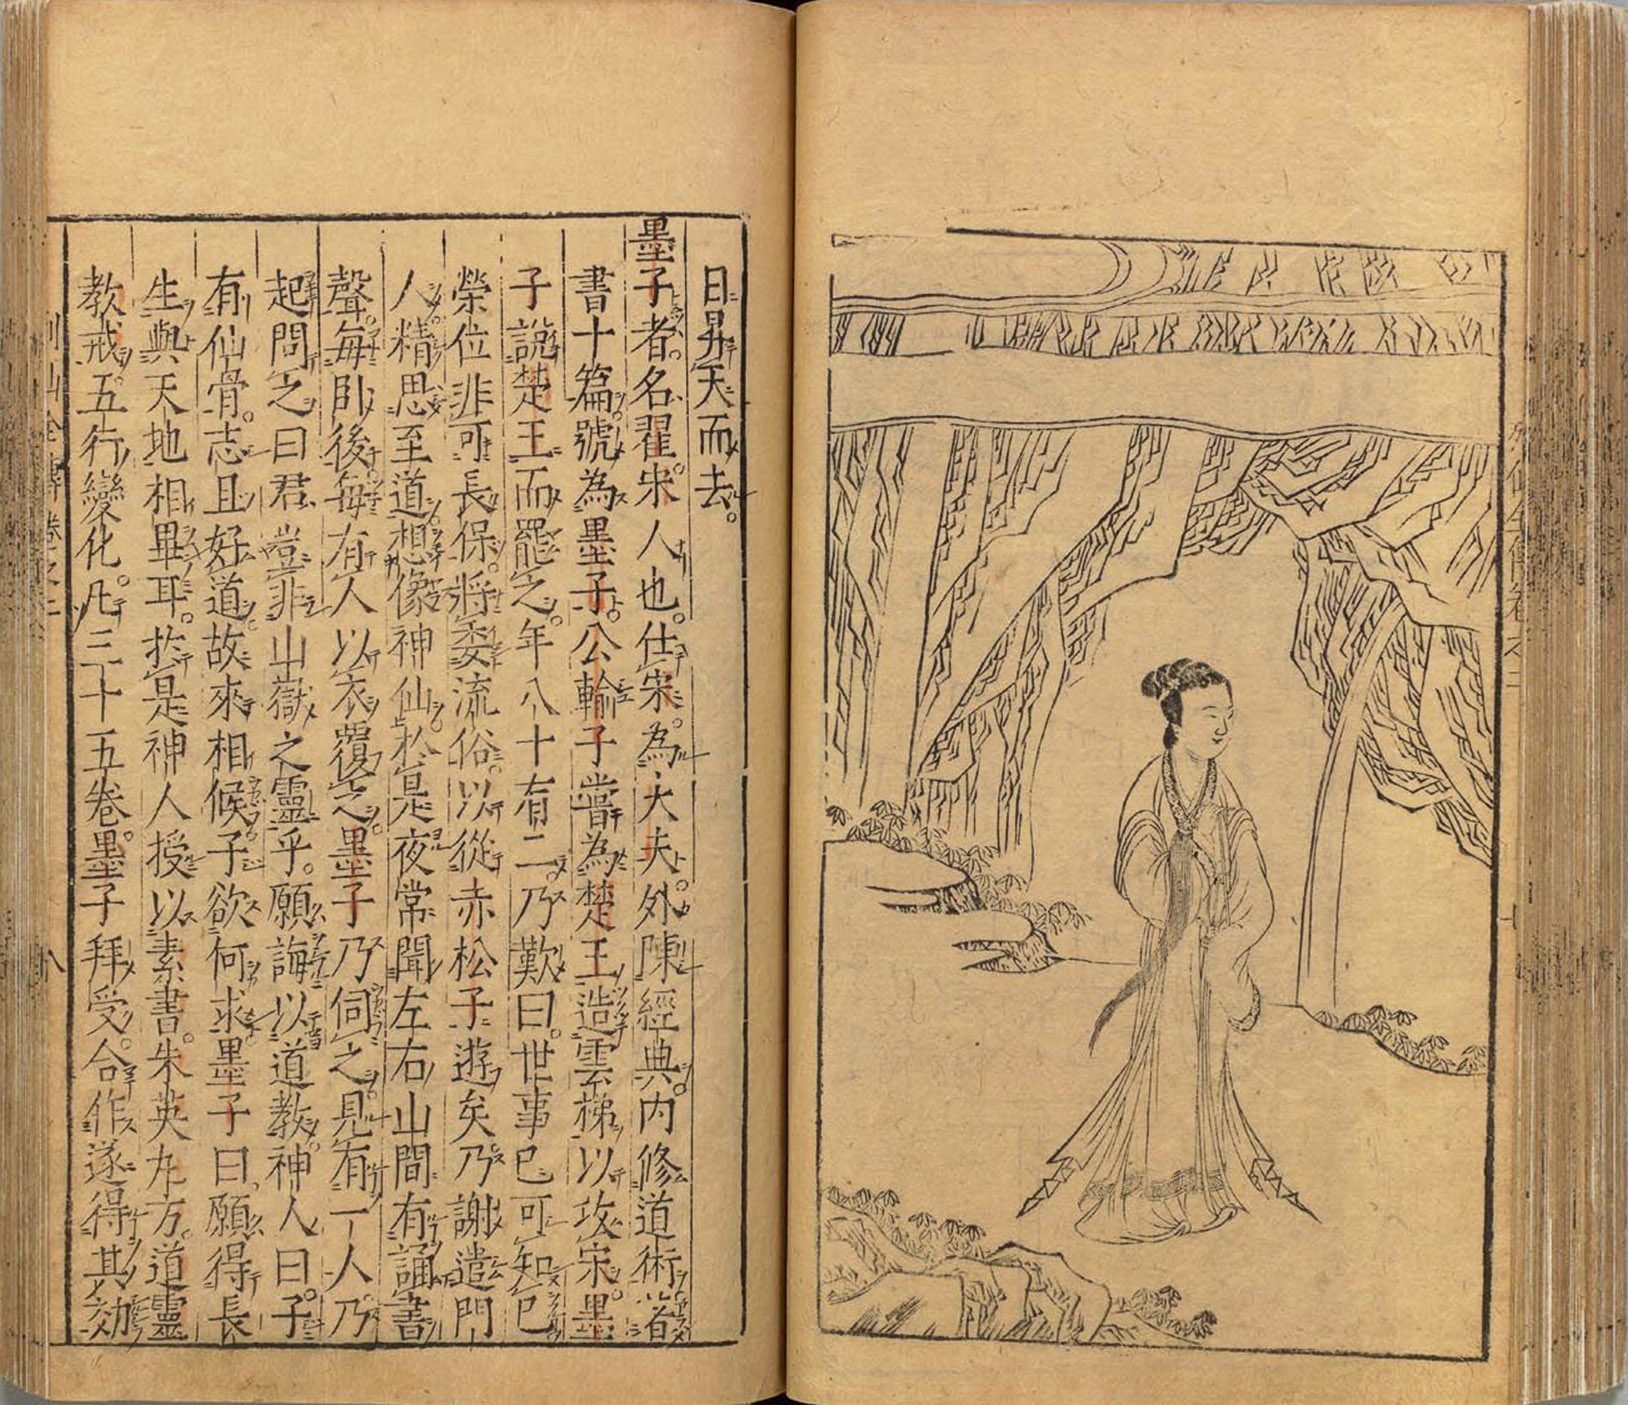 日昇天而去。
墨子者。名翟。宋人也。仕宋。為大夫。外陳經典。内修道術。著
書十篇。號為墨子。公輸子嘗為楚王造雲梯以攻宋。墨
子說楚王而罷之。年八十有二。乃歎曰。世事已可知已
榮位非可長保。將委流俗。以從赤松子遊矣。乃謝遣門
人。精思至道。想像神仙。於是夜常聞左右山間有誦書
聲。每卧後。每有人以衣覆之。墨子乃伺之。見有一人。乃
起問之曰。君豈非山嶽之靈乎。願誨以道教。神人曰。子
有仙骨。志且好道。故來相候。子欲何求。墨子曰。願得長
生與天地相畢耳。於是神人授以素書。朱英丸方。道靈
教戒。五行變化。凡三十五卷。墨子拜受。合作遂得其効
列仙全傳卷之二
八